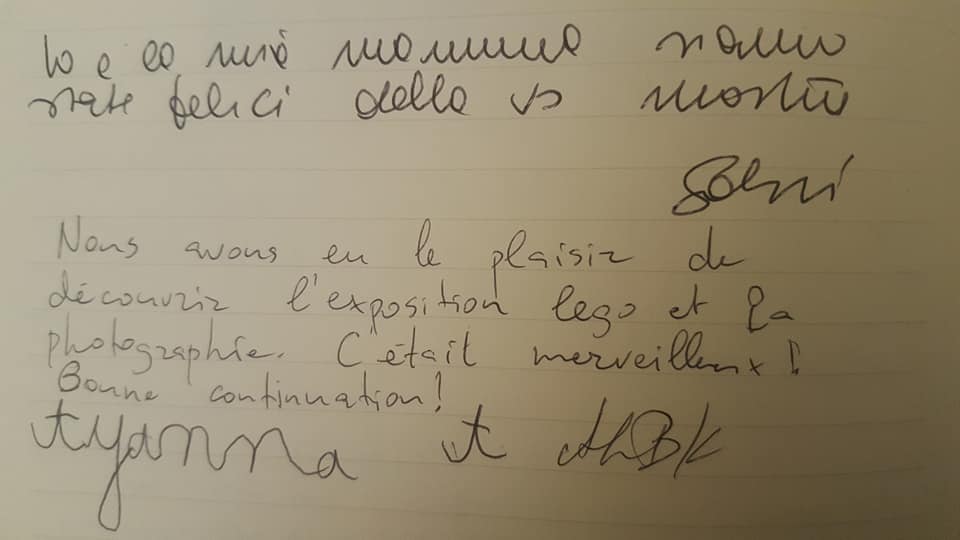 Io e la mia mamma siamo
state felici della vs mostra
Nous avons eu le plaisir de
découvrir l'exposition lego et la
photographie. C'était merveilleux !
Bonne continuation !
Ayanna